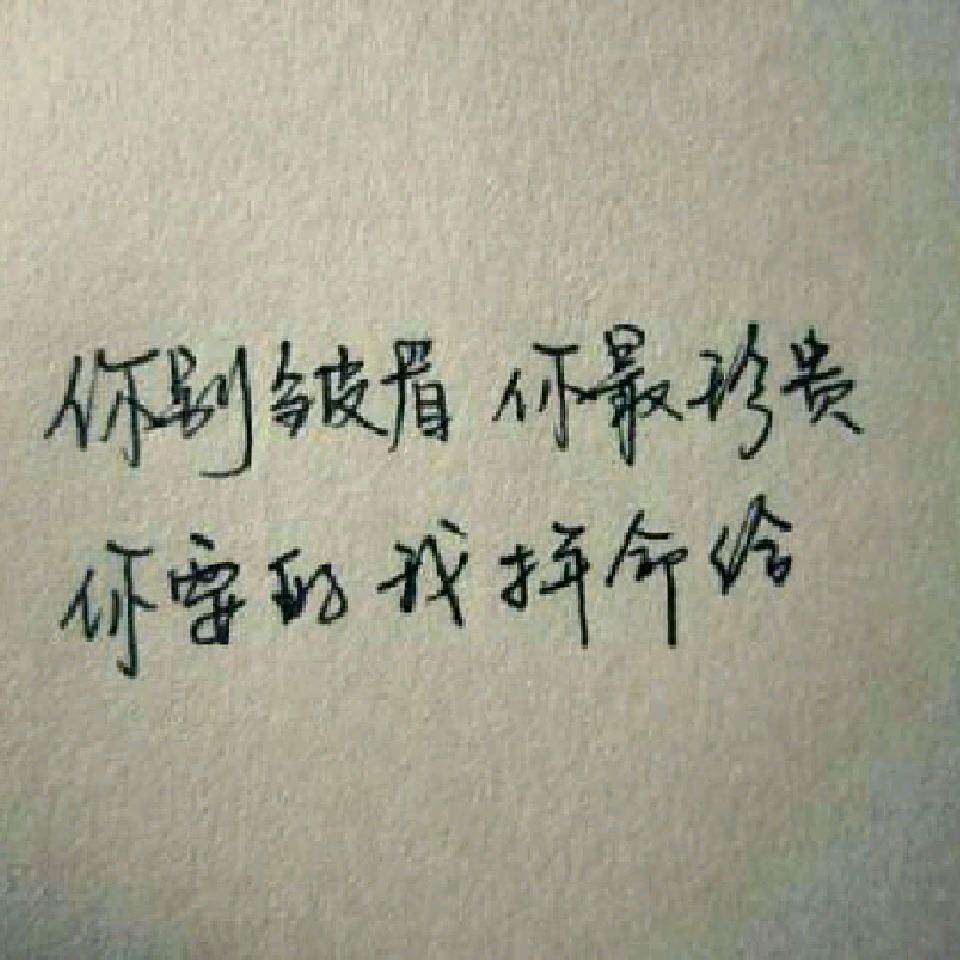 你别皱眉 你最珍贵
你要的我拼命给